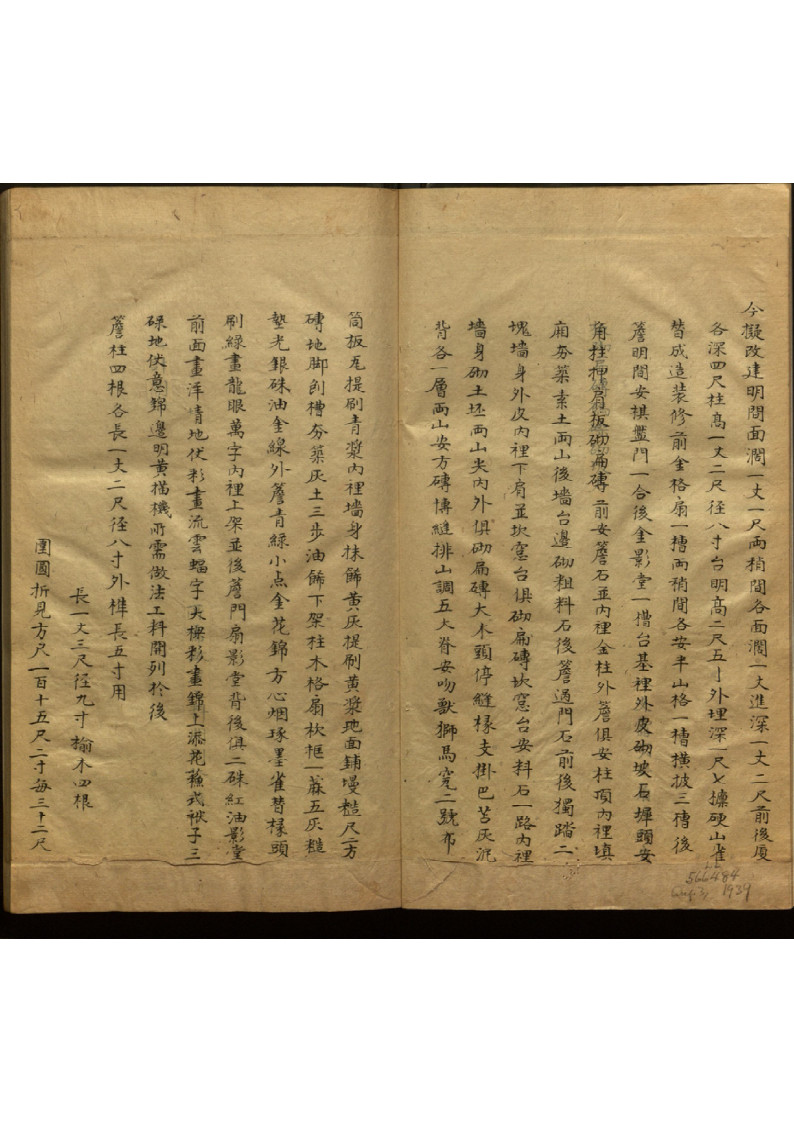 今擬改建明間面濶一丈一尺兩稍間各面濶一丈進深一丈二尺前後廈
各深四尺柱高一丈二尺徑八寸台明高二尺五寸外埋深一尺七檁硬山雀
替成造裝修前金格扇一槽兩稍間各安半山格一槽橫披三槽後
簷明間安棋盤門一合後金影堂一槽台基裡外皮砌坡石墀頭安
角柱押肩板砌扁磚前安簷石並內裡金柱外簷俱安柱頂內裡填
廂夯築素土兩山後墻台邊砌粗料石後簷過門石前後獨踏二
塊墻身外皮內裡下肩並坎窓台俱砌扁磚坎窓台安料石一路內裡
墻身砌土坯兩山尖內外俱砌扁磚大木頭停縫椽支掛巴苫灰泥
背各一層兩山安方磚博縫排山調五大脊安吻獸獅馬寛二號布
筒板瓦提刷青漿內裡墻身抹飾黃灰提刷黃漿地面鋪墁糙尺二方
磚地脚刨槽夯築灰土三步油飾下架柱木格扇枕框一蔴五灰糙
墊光銀硃油金線外簷青綠小点金花錦方心烟琢墨雀替椽頭
刷綠畫龍眼萬字內裡上架並後簷門扇影堂背後俱二硃紅油影堂
前面畫洋青地伏彩畫流雲蝠字天樑彩畫錦上添花蘇式袱子三
碌地伏意錦邊明黃描機所需做法工料開列於後
簷柱四根各長一丈二尺徑八寸外榫長五寸用
長一丈三尺徑九寸榆木四根
圍圓折見方尺一百十五尺二寸每三十二尺
566484
1939